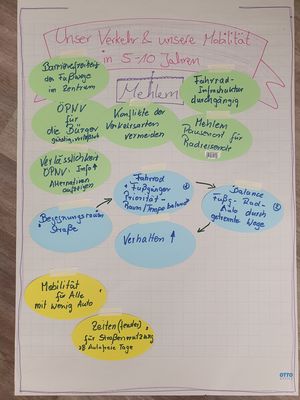 Unser Verkehr & unsere Mobilität
in 5-10 Jahren
Barrierefreiheit
der Fußwege
im Zentrum
Mehlem
Fahrrad-
Infrastruktur
durchgängig
ÖPNV
für
die Bürger
günstig,
Konflikte der
Verkehrsarten
vermeiden
Mehlem
Pausenort für
Radreisende
Verlässlichkeit
ÖPNV - Info↑
Alternativen
aufzeigen
Fahrrad
+ Fußgänger
Priorität
Balance
Fußg.- Rad-
Auto durch
getrennte Wege
Begegnungsraum
Straße
Verhalten ↑
Mobilität
für Alle
mit wenig Auto
Zeiten
für Straßennutzung
zB Autofreie Tage
OTTO